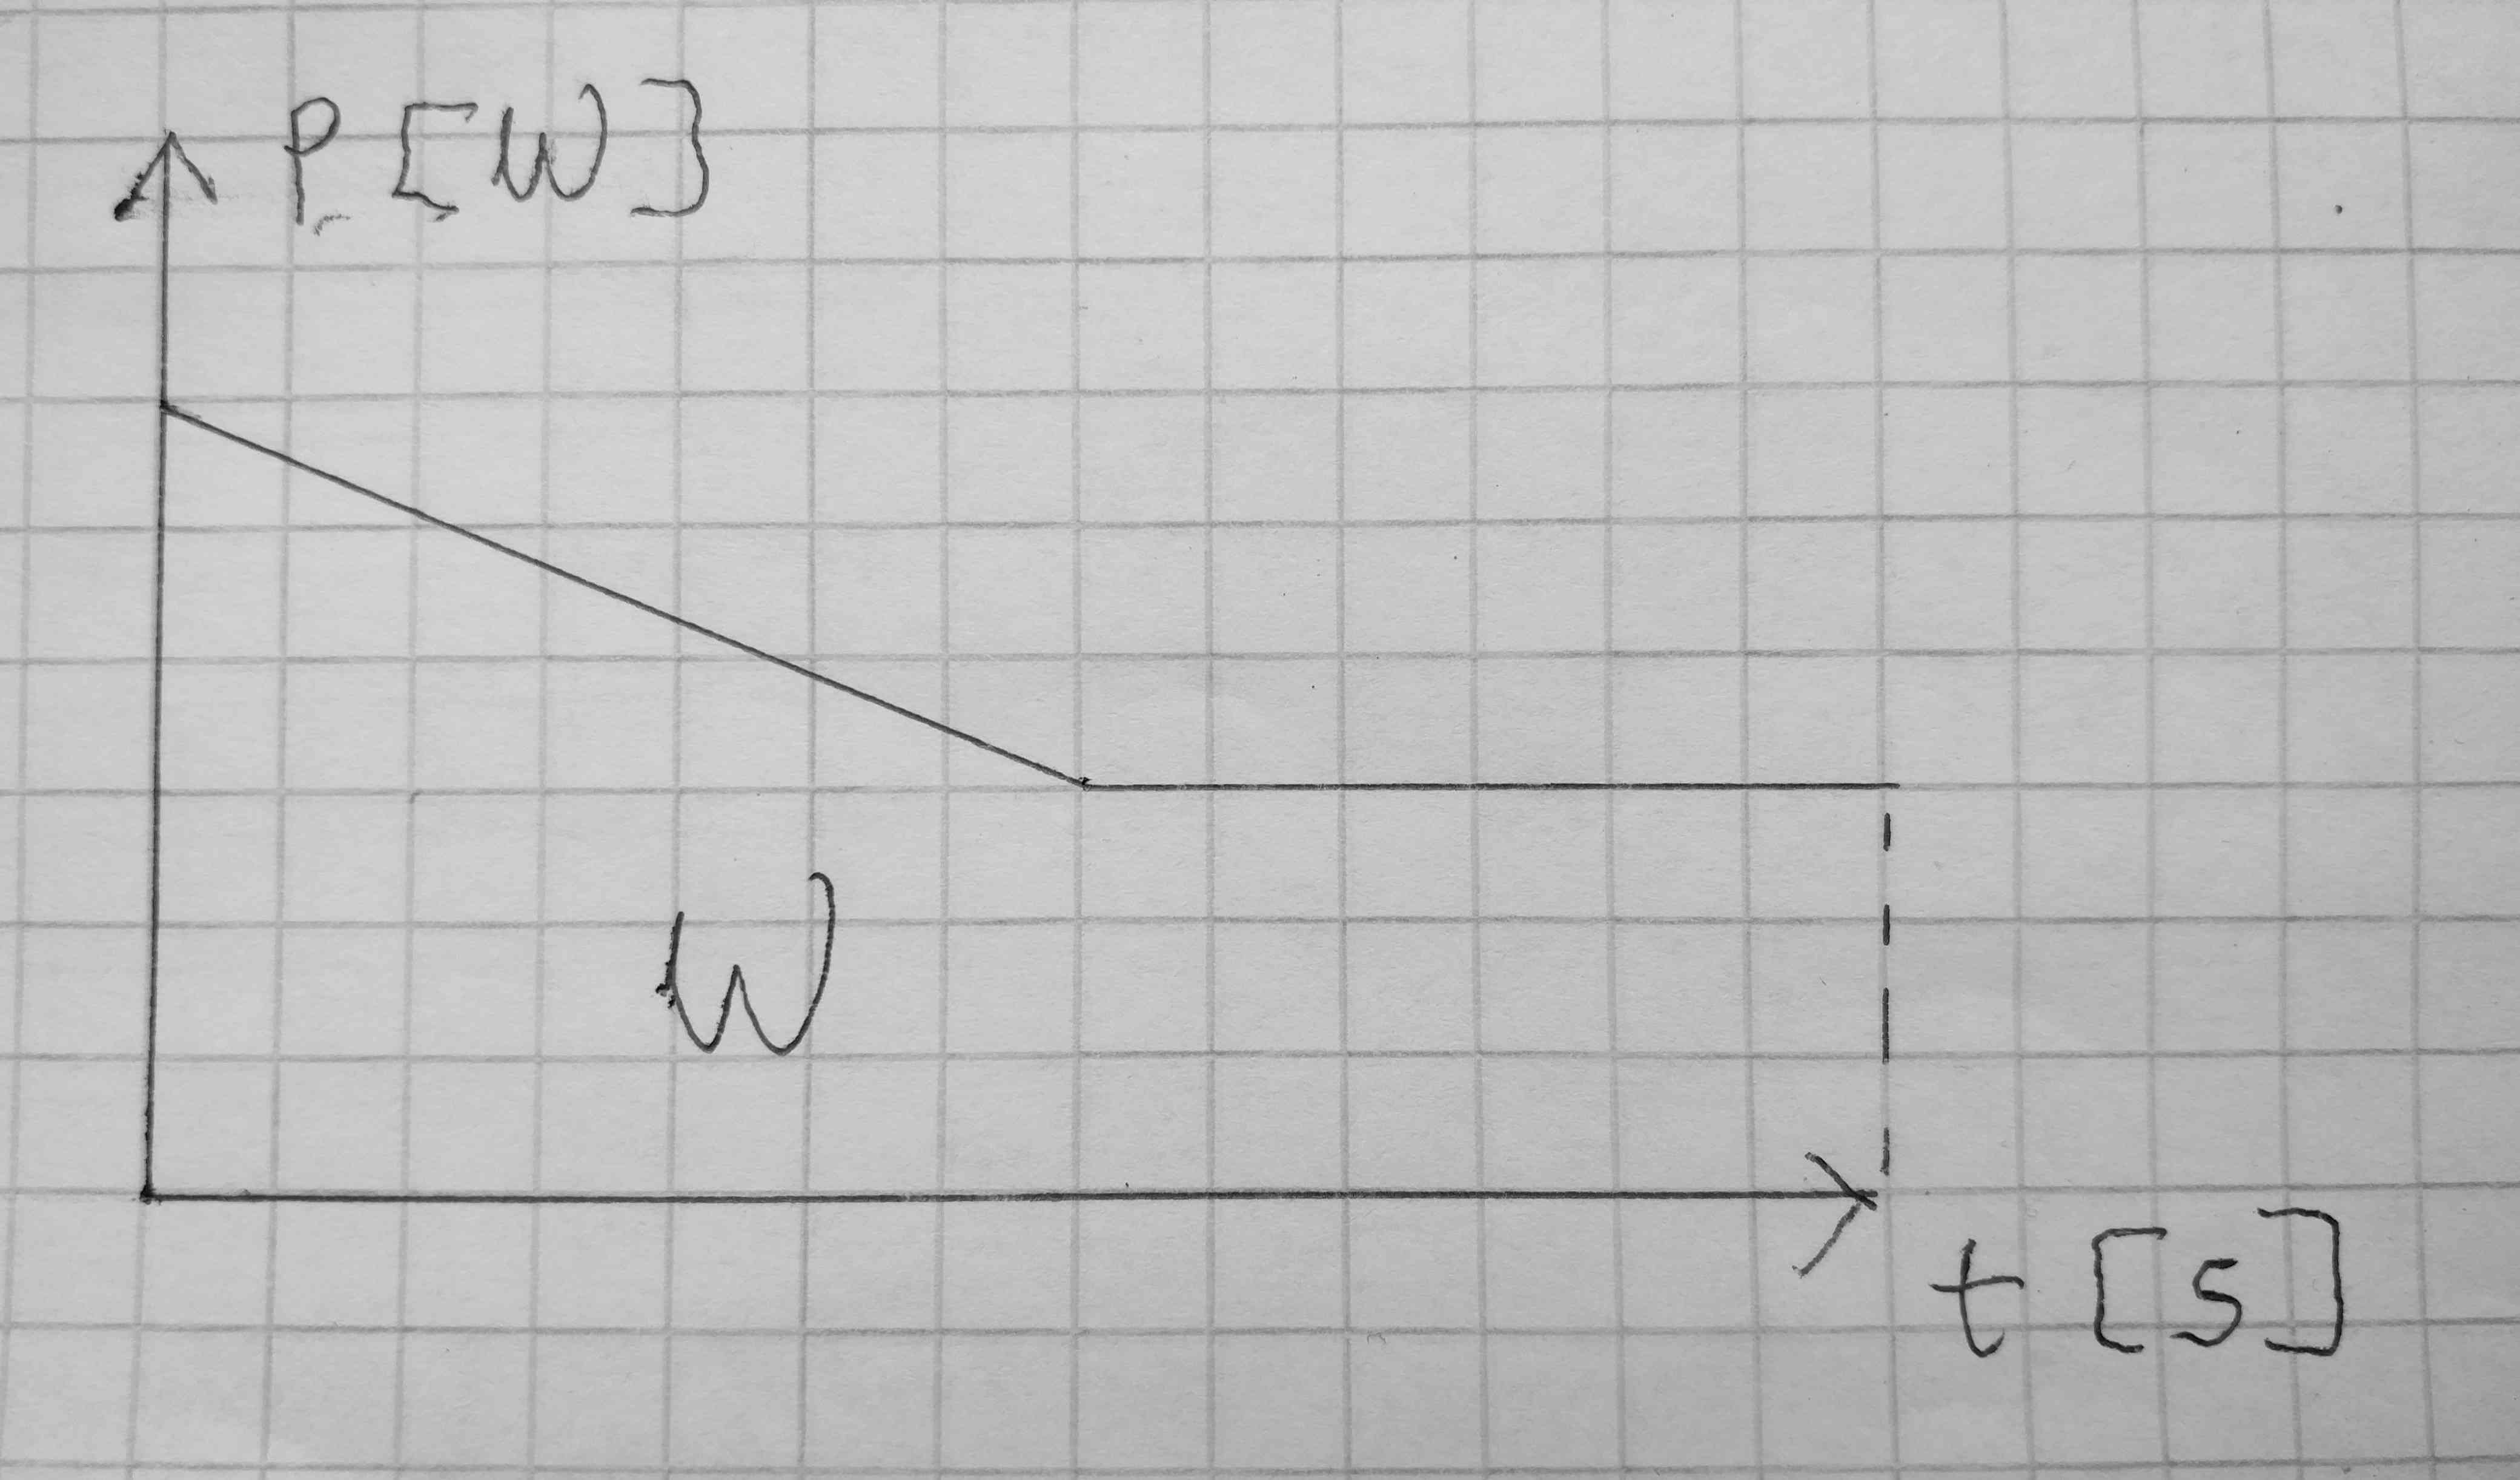 P [W]
W
t [s]